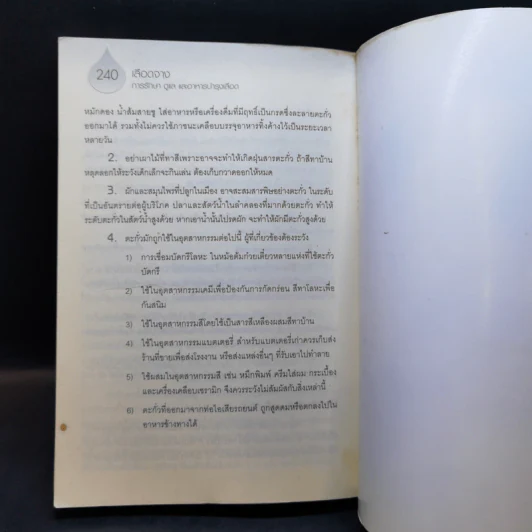 240
เลือดจาง
การรักษา ดูแล และอาหารบำรุงเลือด
หมักดอง น้ำส้มสายชู ใส่อาหารหรือเครื่องดื่มที่มีฤทธิ์เป็นกรดซึ่งละลายตะกั่ว
ออกมาได้ รวมทั้งไม่ควรใช้ภาชนะเคลือบบรรจุอาหารทิ้งค้างไว้เป็นระยะเวลา
หลายวัน
2. อย่าเผาไม้ที่ทาสีเพราะอาจจะทำให้เกิดฝุ่นสารตะกั่ว ถ้าสีทาบ้าน
หลุดลอกให้ระวังเด็กเล็กจะกินเล่น ต้องเก็บกวาดออกให้หมด
3. ผักและสมุนไพรที่ปลูกในเมือง อาจสะสมสารพิษอย่างตะกั่ว ในระดับ
ที่เป็นอันตรายต่อผู้บริโภค ปลาและสัตว์น้ำในลำคลองที่มากด้วยตะกั่ว ทำให้
ระดับตะกั่วในสัตว์น้ำสูงด้วย หากเอาน้ำนั้นไปรดผัก จะทำให้ผักมีตะกั่วสูงด้วย
4. ตะกั่วมักถูกใช้ในอุตสาหกรรมต่อไปนี้ ผู้ที่เกี่ยวข้องต้องระวัง
1) การเชื่อมบัดกรีโลหะ ในหม้อต้มก๋วยเตี๋ยวหลายแห่งที่ใช้ตะกั่ว
บัดกรี
2) ใช้ในอุตสาหกรรมเคมีเพื่อป้องกันการกัดกร่อน สีทาโลหะเพื่อ
กันสนิม
3) ใช้ในอุตสาหกรรมสีโดยใช้เป็นสารสีเหลืองผสมสีทาบ้าน
4) ใช้ในอุตสาหกรรมแบตเตอรี่ สำหรับแบตเตอรี่เก่าควรเก็บส่ง
ร้านที่ขายเพื่อส่งโรงงาน หรือส่งแหล่งอื่นๆ ที่รับเอาไปทำลาย
5) ใช้ผสมในอุตสาหกรรมสี เช่น หมึกพิมพ์ ครีมใส่ผม กระเบื้อง
และเครื่องเคลือบเซรามิก จึงควรระวังไม่สัมผัสกับสิ่งเหล่านี้
6) ตะกั่วที่ออกมาจากท่อไอเสียรถยนต์ ถูกสูดดมหรือตกลงไปใน
อาหารข้างทางได้